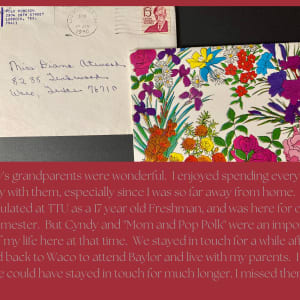 LUBBOCK, TEX.
15
Miss Diane
Waco, Texas 76710
y's grandparents were wonderful. I enjoyed spending every
y with them, especially since I was so far away from home.
ulated at TTU as a 17 year old Freshman, and was here for
mester. But Cyndy and "Mom and Pop Polk" were an impo
f my life here at that time. We stayed in touch for a while aft
d back to Waco to attend Baylor and live with my parents. I
e could have stayed in touch for much longer. I missed them